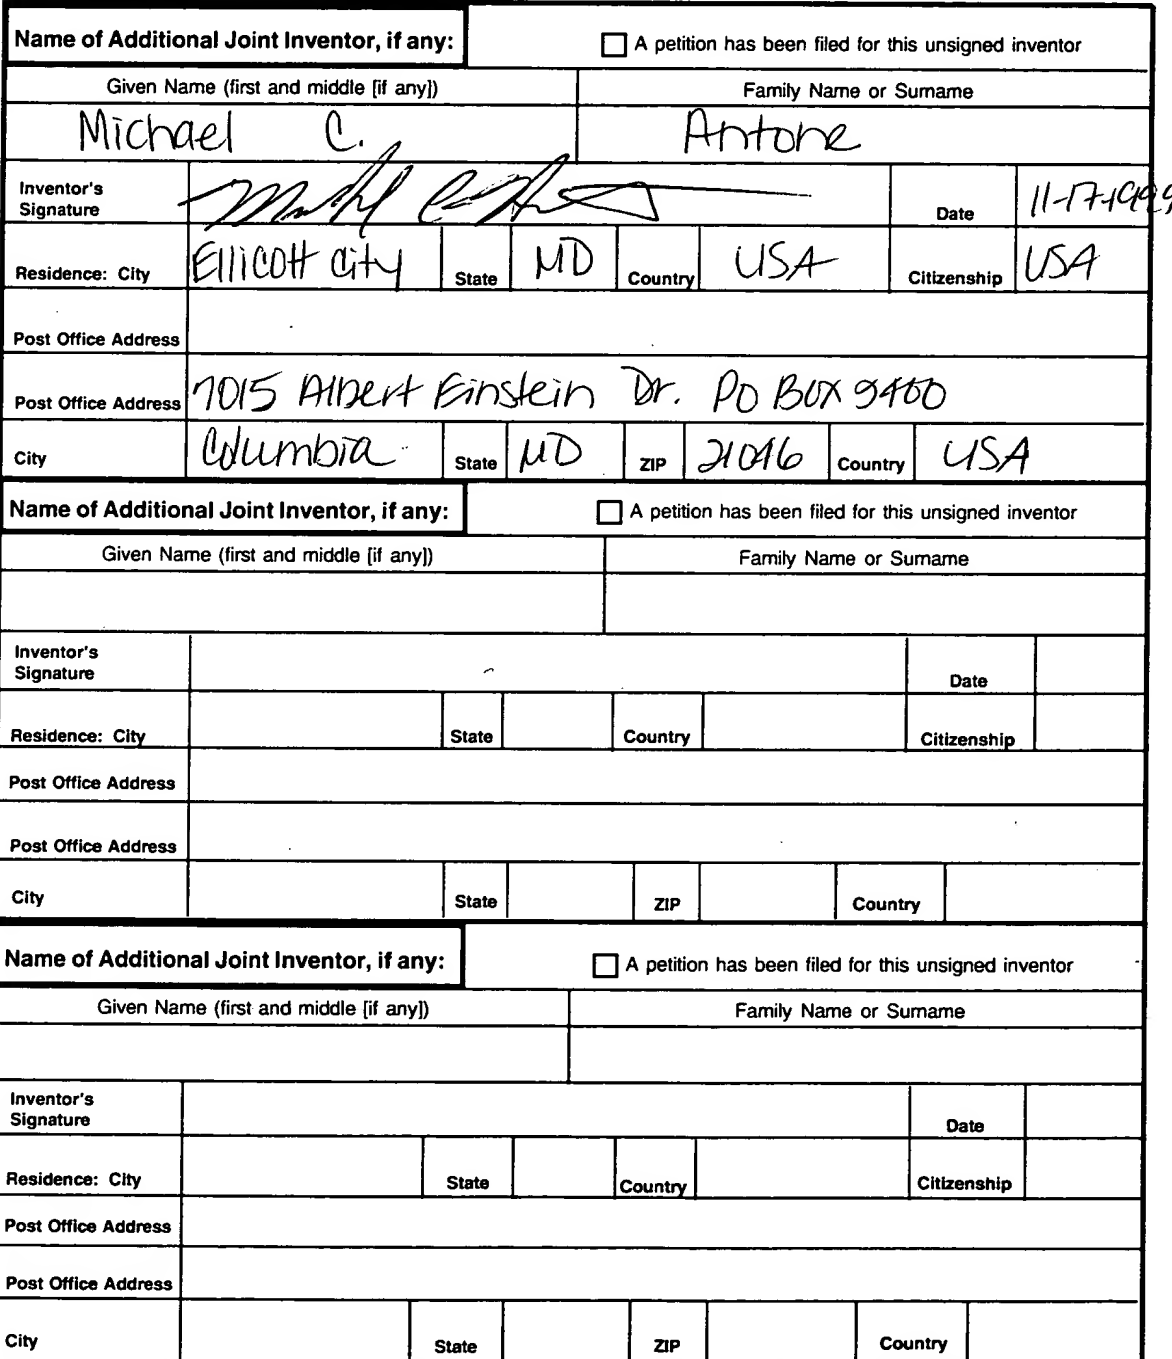 Name of Additional Joint Inventor, if any: A petition has been filed for this unsigned inventor
Given Name (first and middle [if any]) Family Name or Surname
Michael C. Antone
Inventor's
Signature Date 11-17-1999
Residence: City Ellicott City State MD Country USA Citizenship USA
Post Office Address
Post Office Address 7015 Albert Einstein Dr. PO Box 9400
City Columbia State MD ZIP 21046 Country USA
Name of Additional Joint Inventor, if any: A petition has been filed for this unsigned inventor
Given Name (first and middle [if any]) Family Name or Surname
Inventor's
Signature Date
Residence: City State Country Citizenship
Post Office Address
Post Office Address
City State ZIP Country
Name of Additional Joint Inventor, if any: A petition has been filed for this unsigned inventor
Given Name (first and middle [if any]) Family Name or Surname
Inventor's
Signature Date
Residence: City State Country Citizenship
Post Office Address
Post Office Address
City State ZIP Country